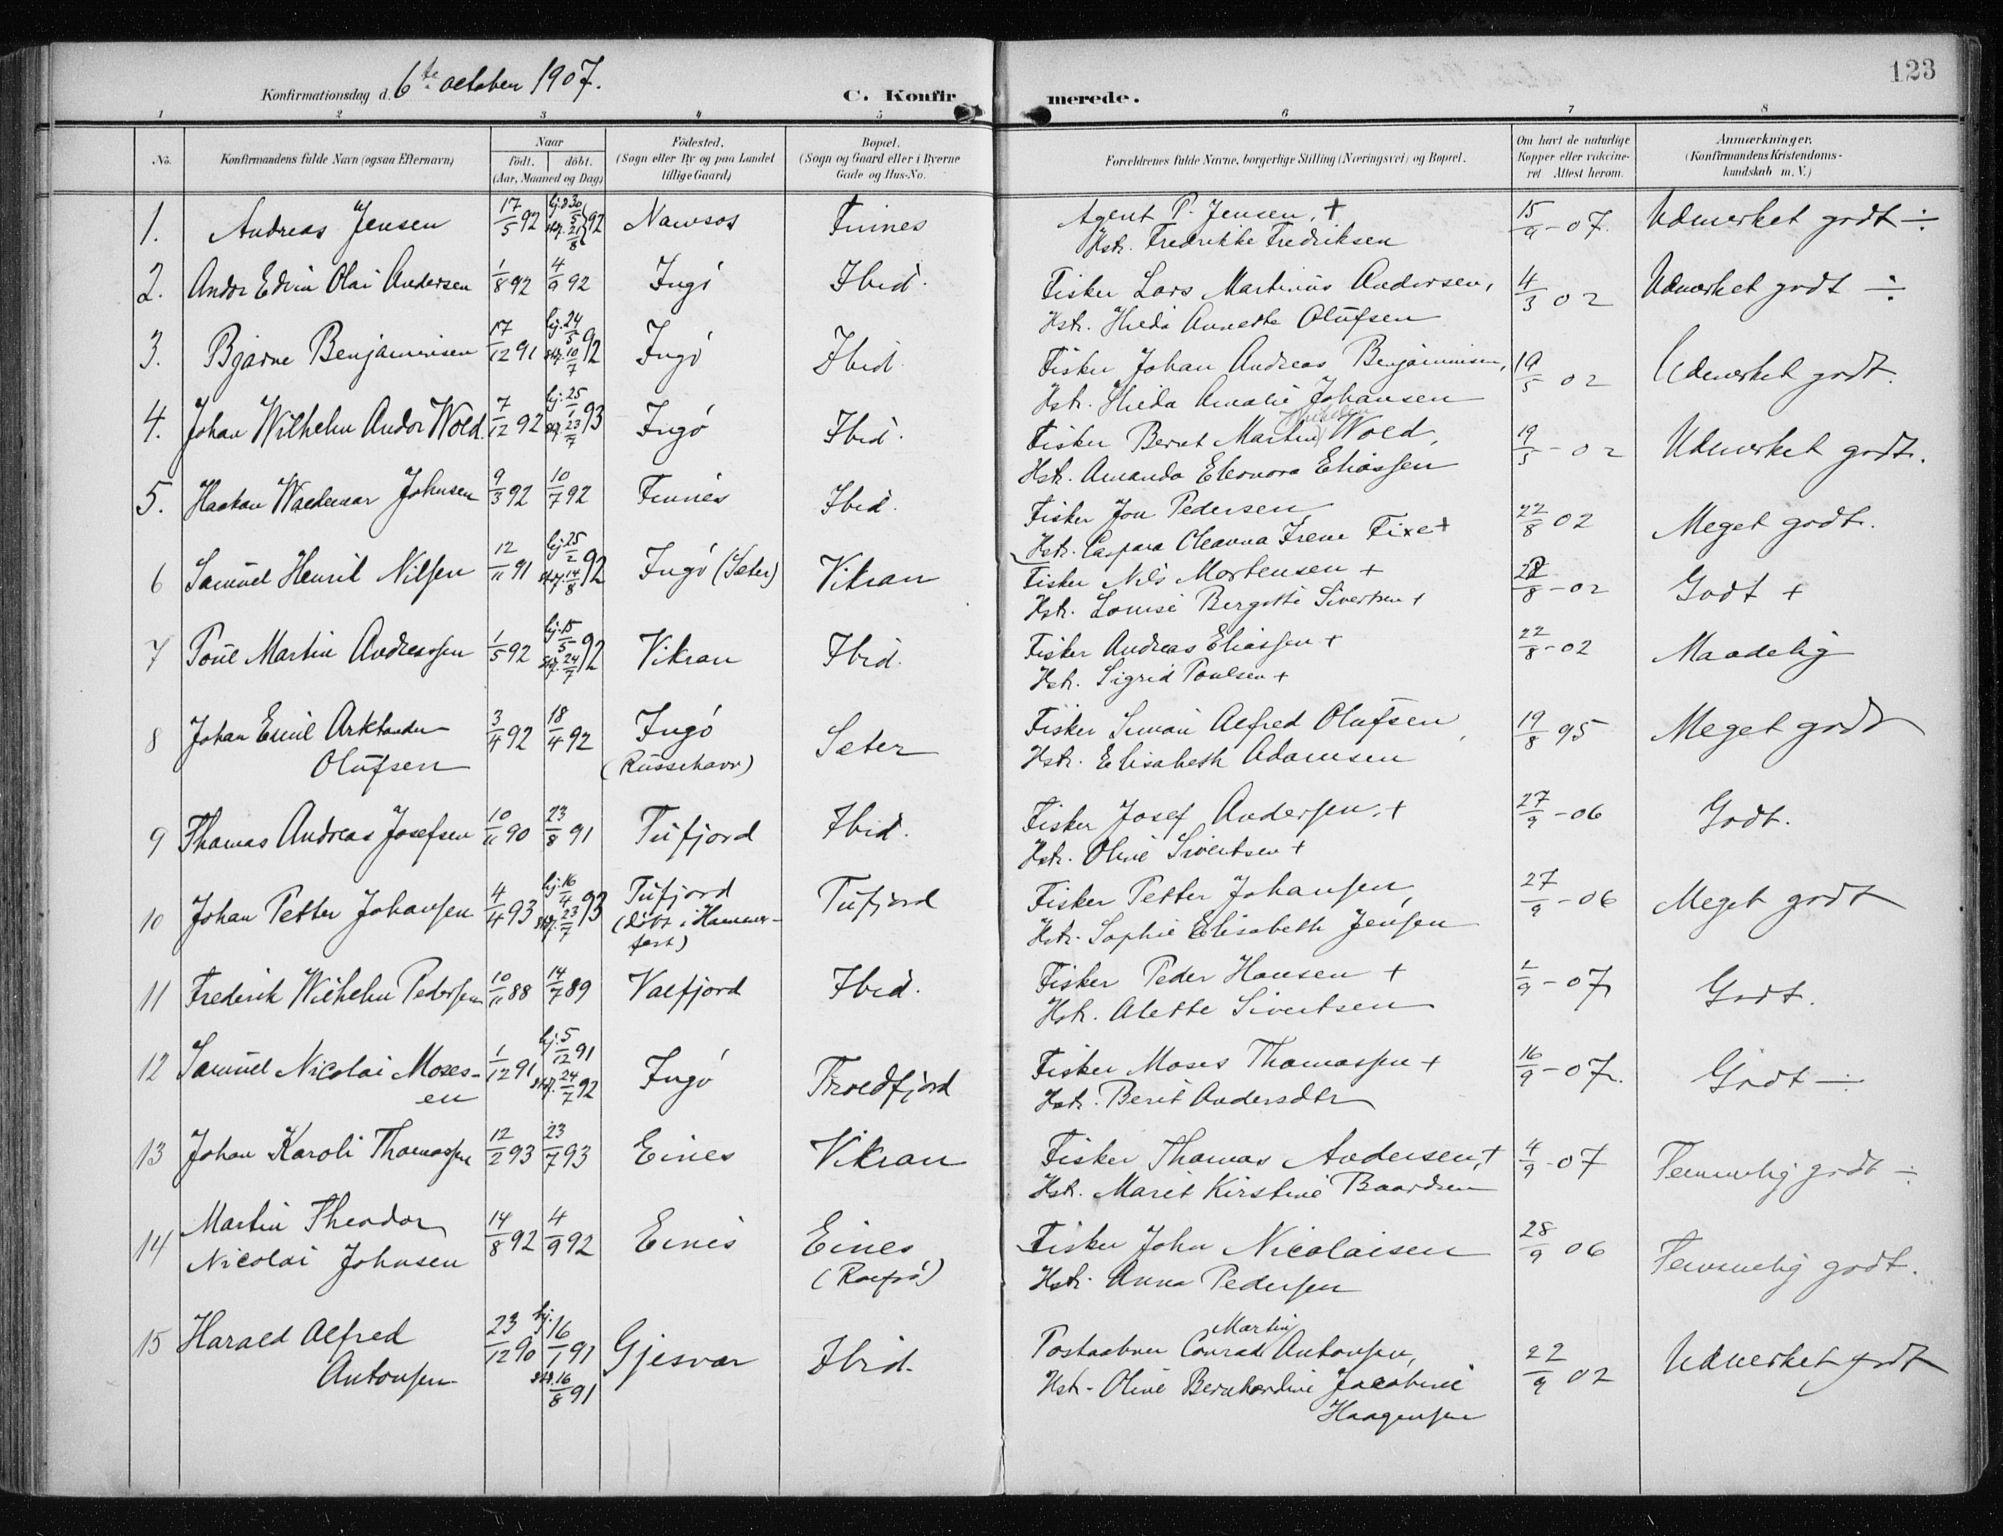 123
Konfirmationsdag d. 6te october 1907.
C. Konfirmerede.
1 2 3 4 5 6 7 8
No. Konfirmandens fulde Navn (ogsaa Efternavn) Naar födt. döbt. (Aar, Maaned og Dag) Födested. (Sogn eller By og paa Landet tillige Gaard) Bopæl. (Sogn og Gaard eller i Byerne Gade og Hus-No. Forældrenes fulde Navne, borgerlige Stilling (Næringsvei) og Bopæl. Om havt de naturlige Kopper eller vakcineret Attest herom. Anmærkninger. (Konfirmandens Kristendomskundskab m. V.)
1. Andreas Jensen 17/5 92 hj. d. 30/5 stf. 21/8 92 Namsos Finnes Agent P. Jensen, + 15/9-07. Udmerket godt ÷
Hstr. Fredrikke Fredriksen
2. Andor Edvin Olai Andersen 1/8 92 4/9 92 Ingö Ibid. Fisker Lars Martinus Andersen, 4/3 02 Udmerket godt ÷
Hstr. Hilda Annette Olufsen
3. Bjarne Benjaminsen 17/12 91 hj. 24/5 stf. 10/7 92 Ingö Ibid. Fisker Johan Andreas Benjaminsen, 19/5 02 Udmerket godt.
Hstr. Hilda Amalie Johansen
4. Johan Wilhelm Andor Wold. 7/12 92 hj. 25/1 stf. 23/7 93 Ingö Ibid. Fisker Bernt Martin Wold, 19/5-02 Udmerket godt.
Hstr. Amanda Eleonora Eliassen
5. Haakon Waldemar Johnsen 9/3 92 10/7 92 Finnes Ibid. Fisker Jon Pedersen 22/8 02 Meget godt.
Hstr. Caspara Oleanna Irene Fixe +
6 Samuel Henrik Nilsen 12/11 91 hj. 25/2 stf. 14/8 92 Ingö (Sæter) Vikran Fisker Nils Mortensen + 22/8-02 Godt +
Hstr. Louise Bergette Sivertsen +
7 Poul Martin Andreassen 1/5 92 hj. 15/5 stf. 24/7 92 Vikran Ibid. Fisker Andreas Eliassen + 22/8-02 Maadelig
Hstr. Sigrid Poulsen +
8 Johan Emil Arktander Olufsen 3/4 92 18/4 92 Ingö (Russehavn) Sæter Fisker Simon Alfred Olufsen, 19/8 95 Meget godt
Hstr. Elisabeth Adamsen
9 Thomas Andreas Josefsen 10/11 90 23/8 91 Tufjord Ibid. Fisker Josef Andersen, + 27/9-06 Godt.
Hstr. Oline Sivertsen +
10 Johan Petter Johansen 4/4 93 hj. 16/4 stf. 23/7 93 Tufjord (döbt i Hammerfest) Tufjord Fisker Petter Johansen, 27/9-06 Meget godt
Hstr. Sophie Elisabeth Jensen
11 Frederik Wilhelm Pedersen 10/11 88 14/7 89 Valfjord Ibid. Fisker Peder Hansen + 1/9-07 Godt.
Hstr. Alette Sivertsen
12 Samuel Nicolai Mosesen 1/12 91 hj. 5/12 91 stf. 24/7 92 Ingö Troldfjord Fisker Moses Thomassen + 16/9-07. Godt ÷
Hstr. Berit Andersdtr
13 Johan Karoli Thomassen 12/2 93 23/7 93 Eines Vikran Fisker Thomas Andersen, + 4/9-07 Temmelig godt ÷
Hstr. Maret Kirstine Baardsen
14 Martin Theodor Nicolai Johnsen 14/8 92 4/9 92 Eines Eines (Rolfsö) Fisker John Nicolaisen 28/9 06 Temmelig godt.
Hstr. Anna Pedersen
15 Harald Alfred Antonsen 23/12 90 hj. 16/1 91 stf. 16/8 91 Gjesvar Ibid. Postaabner Conrad Martin Antonsen, 22/9 02 Udmerket godt
Hstr. Oline Bernhardine Jacobine
Haagensen